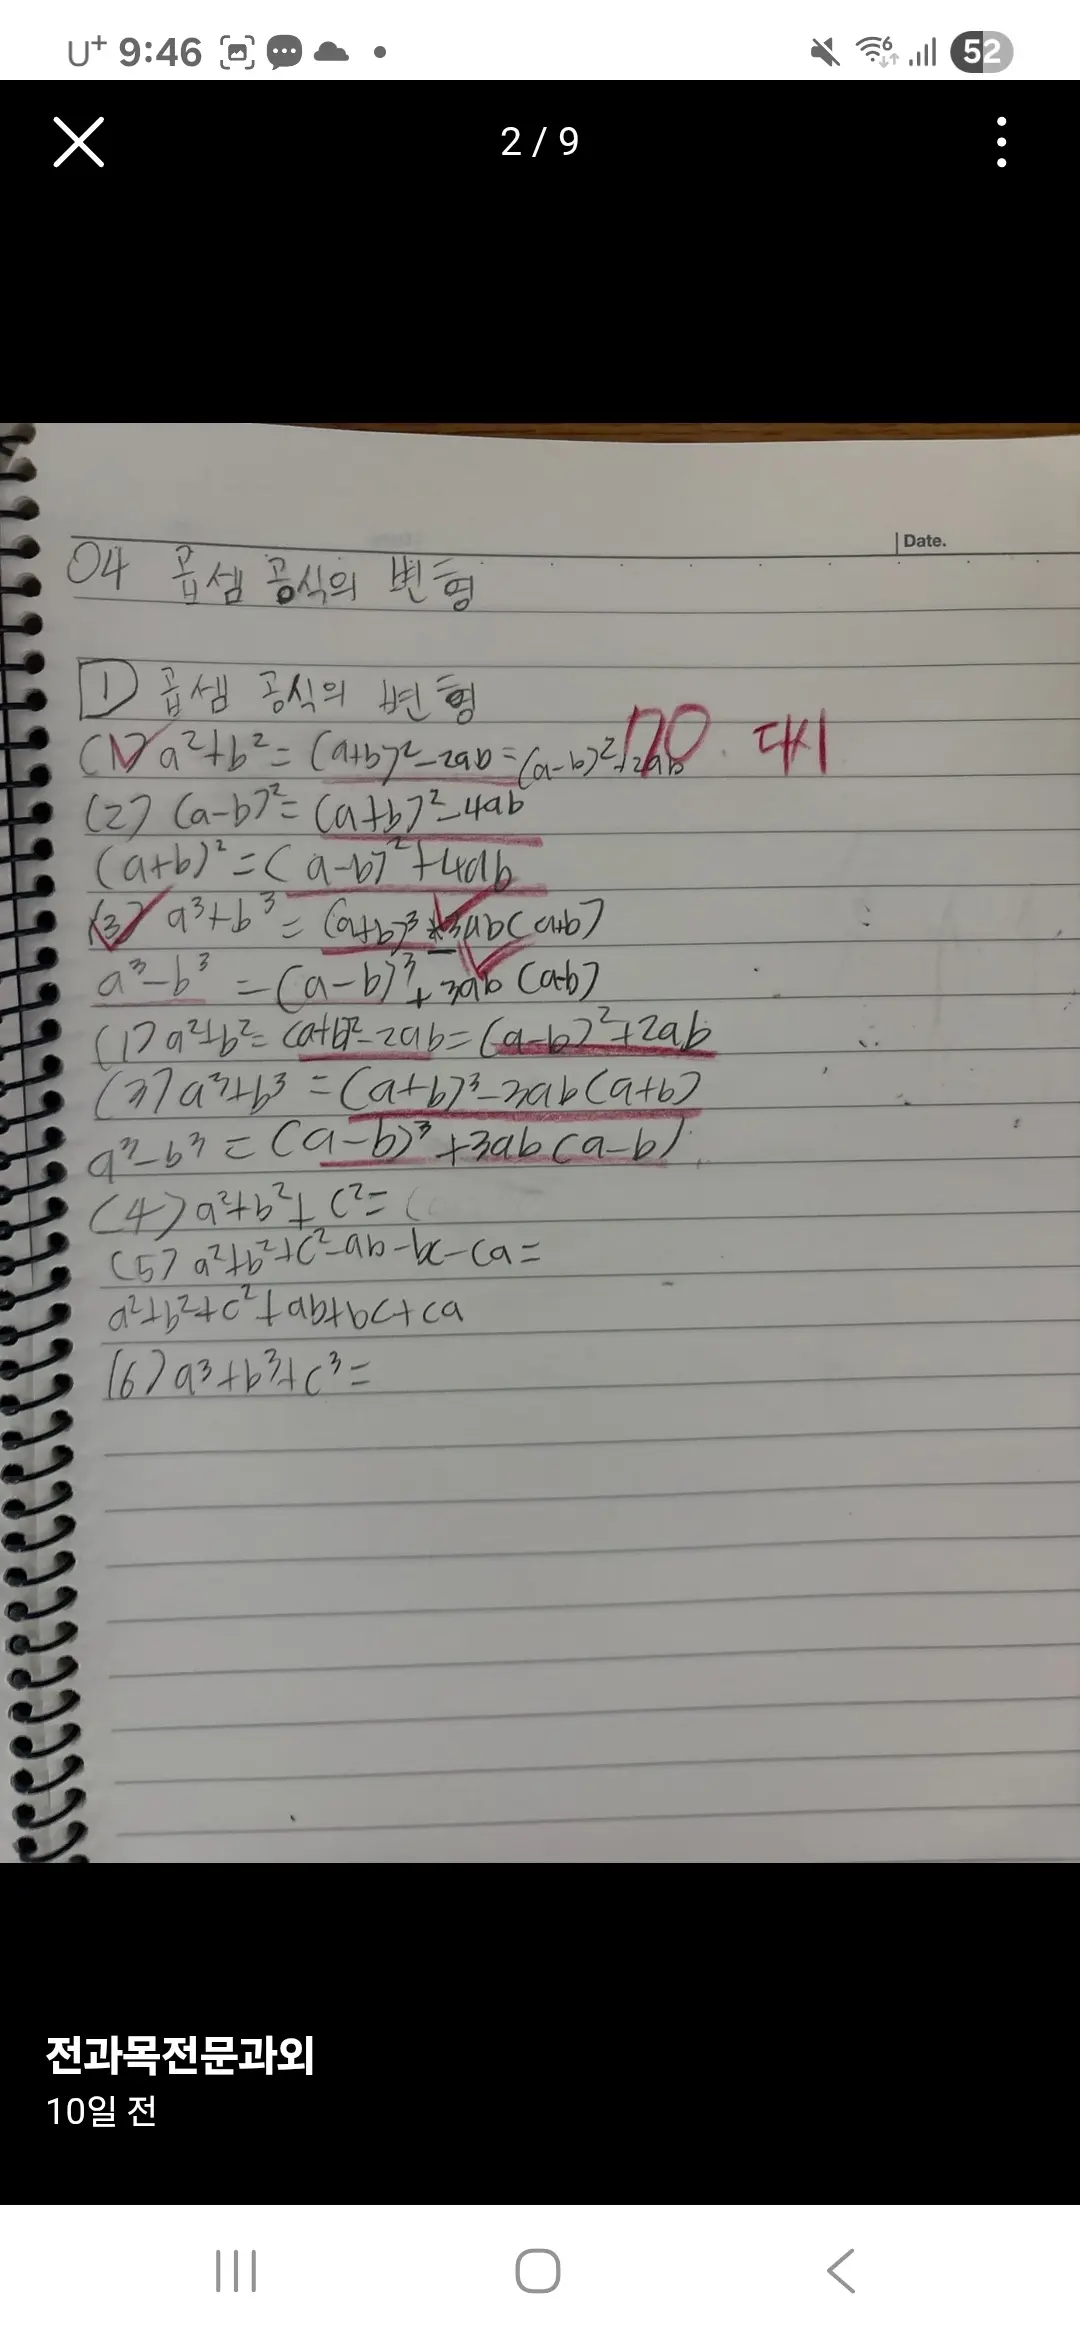 U⁺ 9:46
52
2 / 9
Date.
04 곱셈 공식의 변형
1 곱셈 공식의 변형
(1) a²+b² = (a+b)²-2ab = (a-b)²+2ab
70. 대시
(2) (a-b)² = (a+b)²-4ab
(a+b)² = (a-b)²+4ab
(3) a³+b³ = (a+b)³-3ab(a+b)
a³-b³ = (a-b)³+3ab(a-b)
(1) a²+b² = (a+b)²-2ab = (a-b)²+2ab
(3) a³+b³ = (a+b)³-3ab(a+b)
a³-b³ = (a-b)³+3ab(a-b)
(4) a²+b²+c² = (
(5) a²+b²+c²-ab-bc-ca=
a²+b²+c²+ab+bc+ca
(6) a³+b³+c³=
전과목전문과외
10일 전